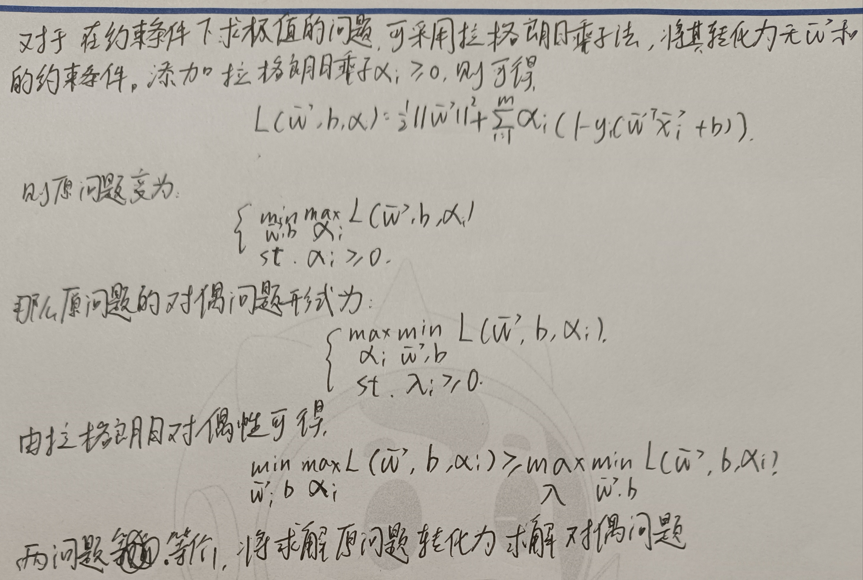 对于在约束条件下求极值的问题,可采用拉格朗日乘子法,将其转化为无w⃗和
的约束条件。添加拉格朗日乘子αᵢ≥0,则可得
L(w⃗,b,α)=½||w⃗||²+∑ᵢ₌₁ᵐαᵢ(1-yᵢ(w⃗ᵀx⃗ᵢ+b)).
则原问题变为:
{ min max L(w⃗,b,αᵢ)
w⃗,b αᵢ
st. αᵢ≥0.
那么原问题的对偶问题形式为:
{ max min L(w⃗,b,αᵢ).
αᵢ w⃗,b
st. λᵢ≥0.
由拉格朗日对偶性可得,
min max L(w⃗,b,αᵢ)≥max min L(w⃗,b,αᵢ)
w⃗,b αᵢ λ w⃗,b
两问题等价,将求解原问题转化为求解对偶问题